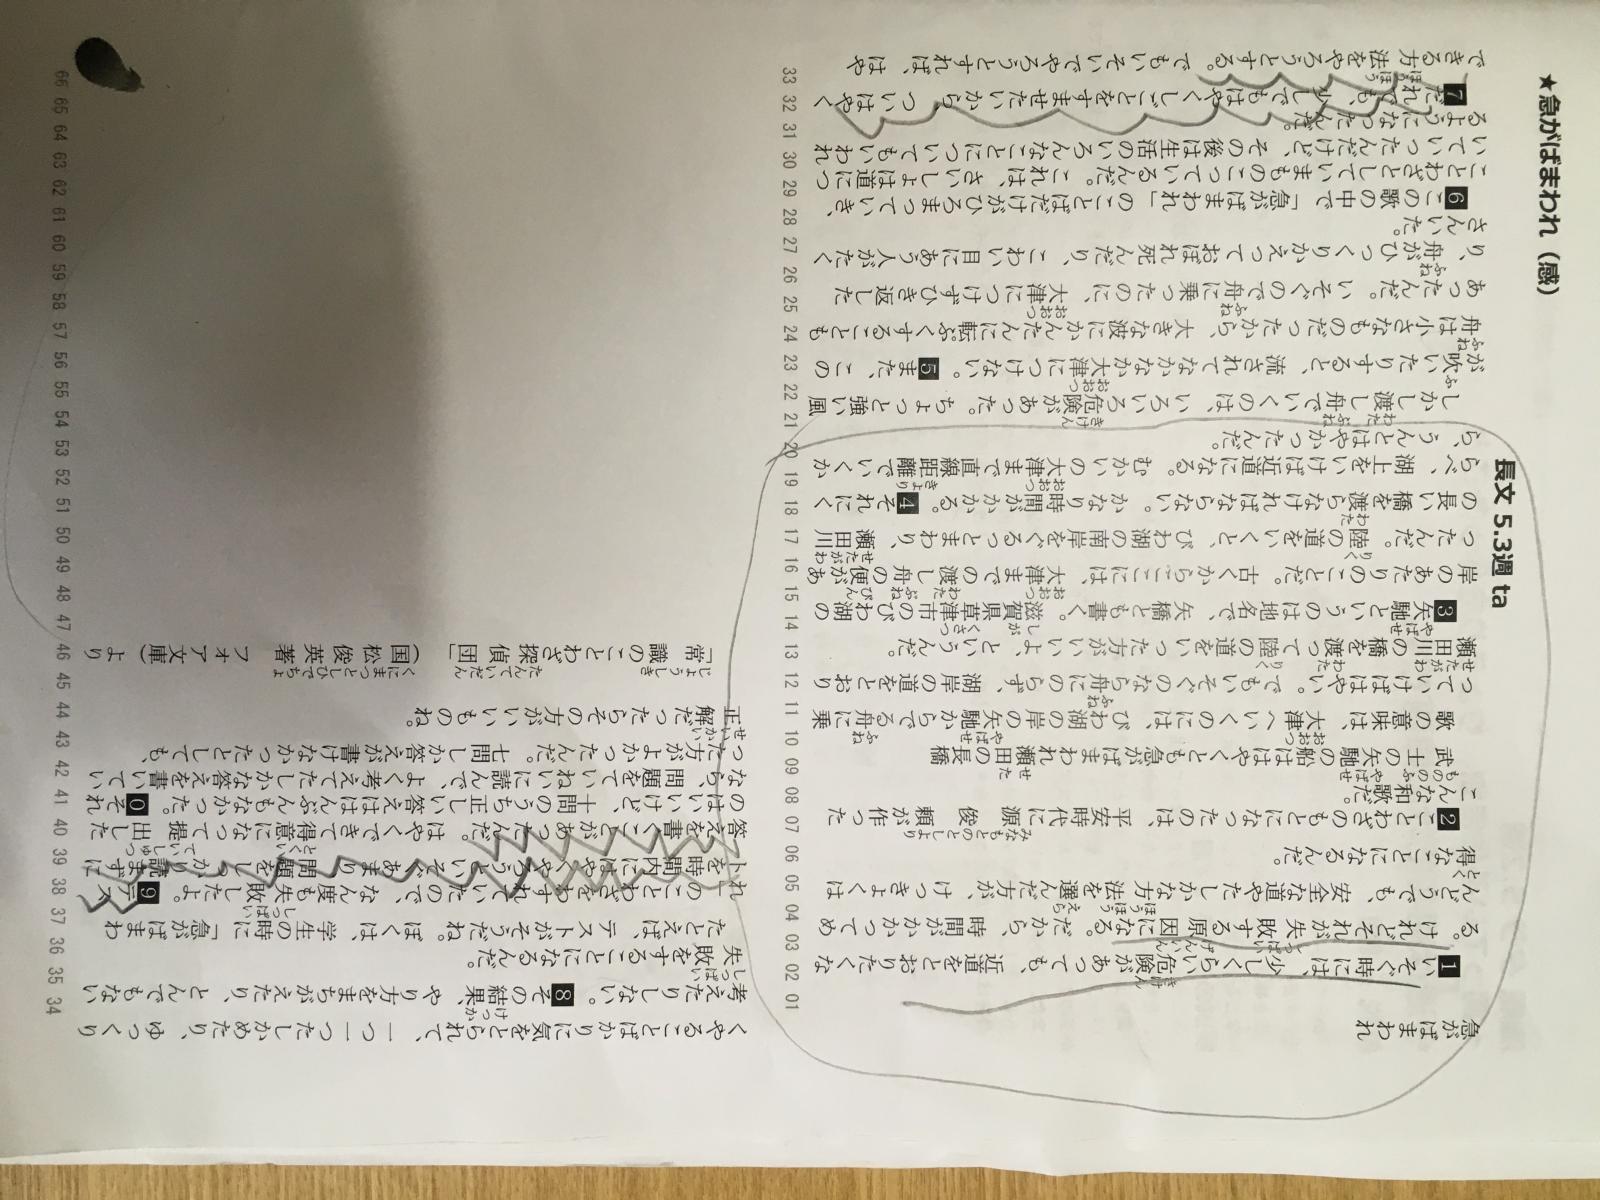 ★急がばまわれ（感）
長文 5.3週 ta
急がばまわれ
1いそぐ時には、少しくらい危険があっても、近道をとおりたくな
る。けれどそれが失敗する原因になる。だから、時間がかかってめ
んどうでも、安全な道やたしかな方法を選んだ方が、けっきょくは
得なことになるんだ。
2ことわざのもとになったのは、平安時代に源俊頼が作った
こんな和歌だ。
武士の矢馳の船ははやくとも急がばまわれ瀬田の長橋
歌の意味は、大津へいくのには、びわ湖の岸の矢馳からでる舟に乗
っていけばはやい。でもいそぐのなら舟にのらず、湖岸の道をとおり
瀬田川の橋を渡って陸の道をいった方がいいよ、というんだ。
3矢馳というのは地名で、矢橋とも書く。滋賀県草津市のびわ湖の
岸のあたりのことだ。古くからここには、大津までの渡し舟の便があ
ったんだ。陸の道をいくと、びわ湖の南岸をぐるっとまわり、瀬田川
の長い橋を渡らなければならない。かなり時間がかかる。4それにく
らべ、湖上をいけば近道になる。むかいの大津まで直線距離でいくか
ら、うんとはやかったんだ。
しかし渡し舟でいくのは、いろいろ危険があった。ちょっと強い風
が吹いたりすると、流されてなかなか大津につけない。5また、この
舟は小さなものだったから、大きな波にかんたんに転ぷくすることも
あったんだ。いそぐので舟に乗ったのに、大津につけずひき返した
り、舟がひっくりかえっておぼれ死んだり、こわい目にあう人がたく
さんいた。
6この歌の中で「急がばまわれ」のことばだけがひろまっていき、
ことわざとしていまものこっているんだ。これは、さいしょは道につ
いていったんだけど、その後は生活のいろんなことについてもいわれ
るようになったんだ。
7だれでも、少しでもはやくしごとをすませたいから、ついはやく
できる方法をやろうとする。でもいそいでやろうとすれば、はや
くやることばかりに気をとられて、一つ一つたしかめたり、ゆっくり
考えたりしない。8その結果、やり方をまちがえたり、とんでもない
失敗をすることになるんだ。
たとえば、テストがそうだね。ぼくは、学生の時に「急がばまわ
れ」のことわざをわすれていたので、なん度も失敗したよ。9テス
トを時間内にはやくやろうといそぐあまり、問題をしっかり読まずに
答えを書くことがあったんだ。はやくできて得意になって提出した
のはいいけど、十問のうち正しい答えははんぶんもなかった。0それ
なら、問題をていねいに読んで、よく考えてたしかな答えを書いてい
った方がよかったんだ。七問しか答えが書けなかったとしても、
正解だったらその方がいいものね。
「常識のことわざ探偵団」（国松俊英著　フォア文庫）より
01 02 03 04 05 06 07 08 09 10 11 12 13 14 15 16 17 18 19 20 21 22 23 24 25 26 27 28 29 30 31 32 33
34 35 36 37 38 39 40 41 42 43 44 45 46 47 48 49 50 51 52 53 54 55 56 57 58 59 60 61 62 63 64 65 66